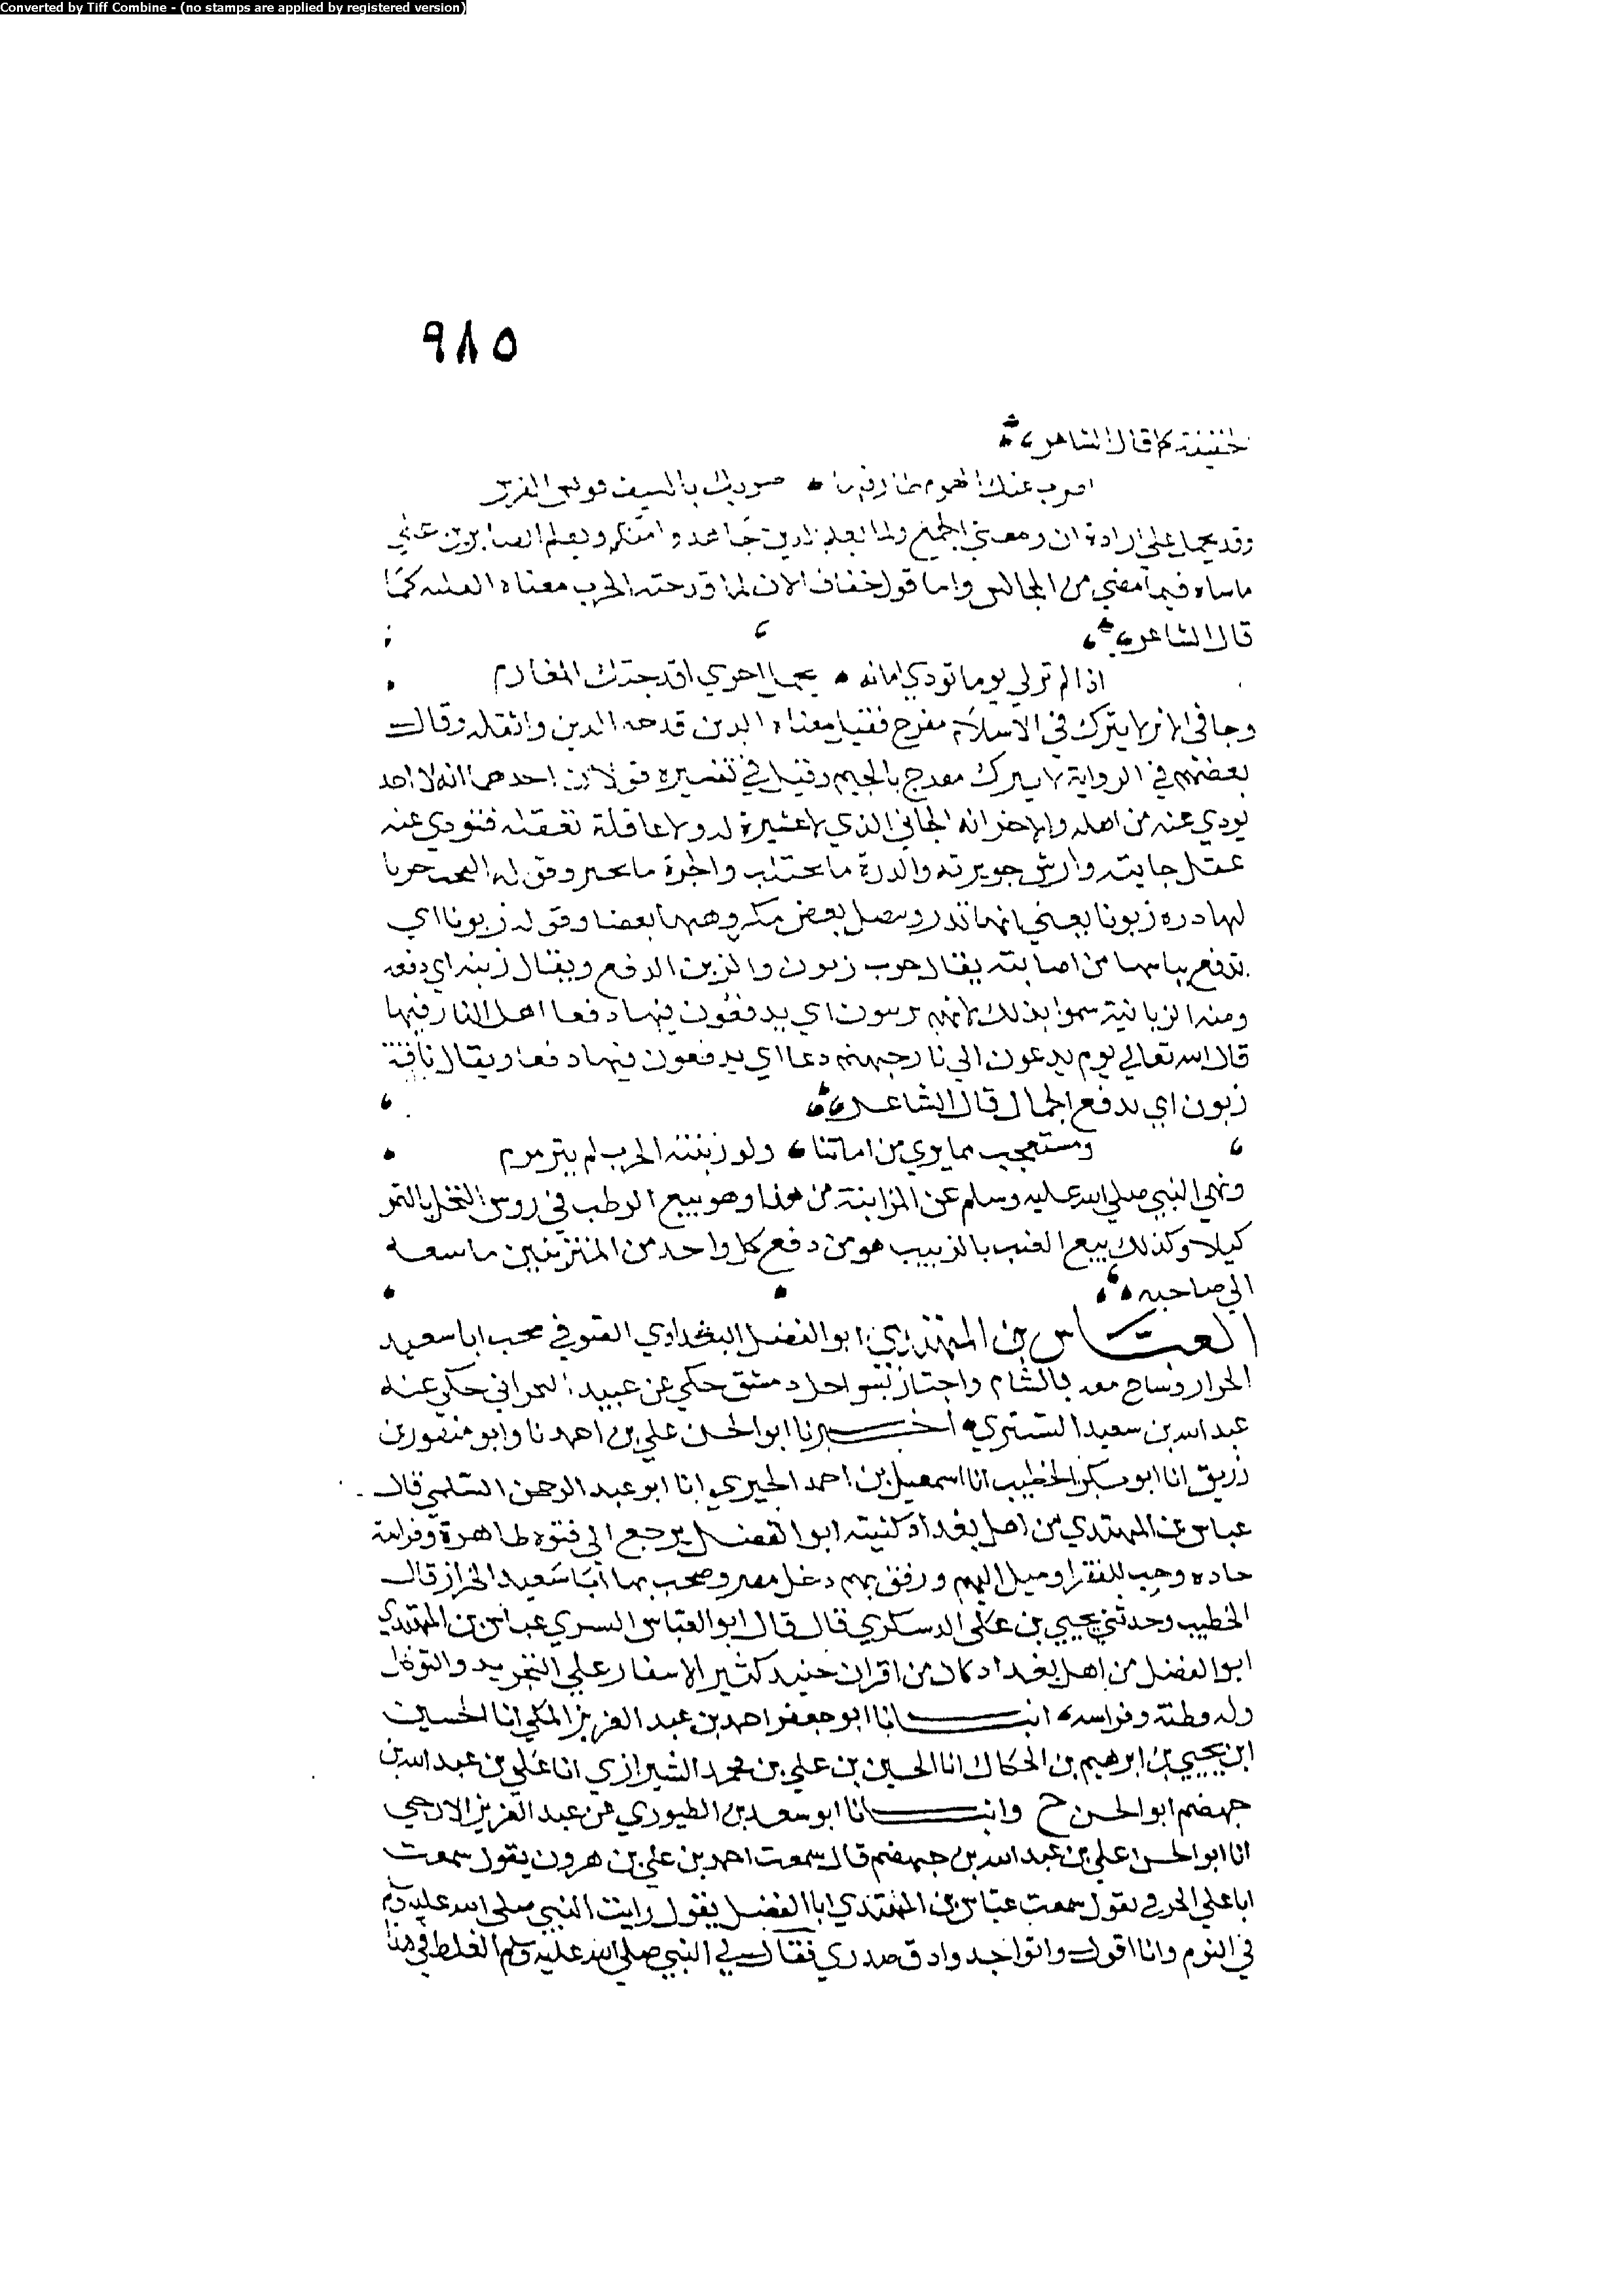 Converted by Tiff Combine - (no stamps are applied by registered version)
٩٨٥
خفيفة كما قال الشاعر
اضرب عنك الهموم طارقها ضربك بالسيف قونس الفرس
وقد يحمل على ارادة ان ومعني الجميع ولما يعلم الذين جاهدوا منكم ويعلم الصابرين علي
ما ساه فيما مضي من المجالس واما قول خفاف الان لما قدحته الحرب معناه اثقلته كما
قال الشاعر
اذا لم تزل يوما تودي امانه تحمل اخري افدحتك المغارم
وجا في الاثر لا يترك في الاسلام مفرح فقيل معناه الذين فدحه الدين واثقله وقال
بعضهم في الرواية لا يترك مفرج بالجيم وقيل في تفسيره قولان احدهما انه لا احد
يودي عنه من اهله والاخر انه الجاني الذي لا عشيرة له ولا عاقلة تعقله فتودي عنه
عقل جايته وارش جويرته والدرة ما تحتلب والجرة ما تجتر وقوله البحت حربا
لها دره زبونا يعني انها تدر وتصل بعض مكروهها بعضا وقوله زبونا اي
تدفع بباسها من اصابته يقال حرب زبون والزبن الدفع ويقال زبنه اي دفعه
ومنه الزبانية سموا بذلك لانهم يزبنون اي يدفعون فيها دفعا اهل النار فيها
قال الله تعالي يوم يدعون الي نار جهنم دعا اي يدفعون فيها دفعا ويقال ناقة
زبون اي تدفع الجمال قال الشاعر
ومستعجب مما يري من اناتنا ولو زبنته الحرب لم يترمرم
ونهي النبي صلي الله عليه وسلم عن المزابنة من هذا وهو بيع الرطب في روس النخل بالتمر
كيلا وكذلك بيع العنب بالزبيب هو من دفع كل واحد من المتزبنين ما سعه
الي صاحبه
العباس بن المهتدي ابو الفضل البغدادي الصوفي صحب ابا سعيد
الخراز وساح معه بالشام واجتاز بسواحل دمشق حكي عن عبيد البحراني حكي عنه
عبد الله بن سعيد التستري اخبرنا ابو الحسن علي بن احمد نا وابو منصور بن
زريق انا ابو بكر الخطيب انا اسمعيل بن احمد الحيري انا ابو عبد الرحمن السلمي قال
عباس بن المهتدي من اهل بغداد كنيته ابو الفضل يرجع الي فتوه ظاهرة وفراسة
حاده وحب للفقرا وميل اليهم ورفق بهم دخل مصر وصحب بها ابا سعيد الخراز قال
الخطيب وحدثني يحيي بن علي الدسكري قال قال ابو العباس النسري عباس بن المهتدي
ابو الفضل من اهل بغداد كان من اقران جنيد كثير الاسفار علي التجريد والتوكل
وله فطنة وفراسه انبانا ابو جعفر احمد بن عبد العزيز المكي انا الحسين
ابن يحيي بن ابرهيم بن الحكاك انا الحسين بن علي بن محمد الشيرازي انا علي بن عبد الله بن
جهضم ابو الحسن ح وانبانا ابو سعد بن الطيوري عن عبد العزيز الازجي
انا ابو الحسن علي بن عبد الله بن جهضم قال سمعت احمد بن علي بن هرون يقول سمعت
ابا علي الحرفي يقول سمعت عباس بن المهتدي ابا الفضل يقول رايت النبي صلي الله عليه وسلم
في النوم وانا اقول واتواجد وادق صدري فقال لي النبي صلي الله عليه وسلم الغلط في هذا